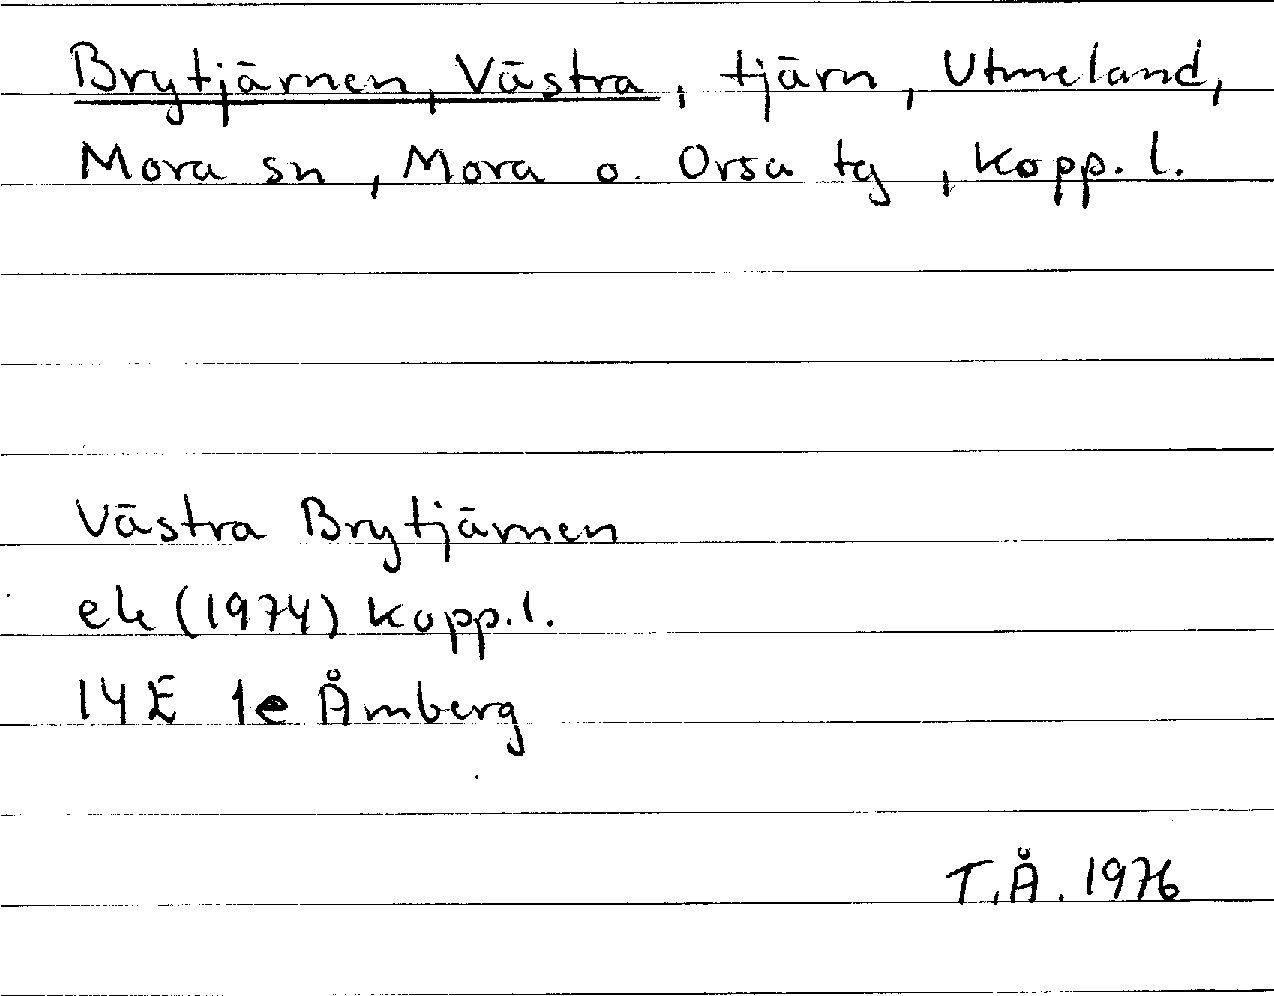 Brytjärnen, Västra, tjärn, Utmeland,
Mora sn, Mora o. Orsa tg, Kopp. l.
Västra Brytjärnen
ek (1974) Kopp. l.
14E 1e Åmberg
T.Å. 1976